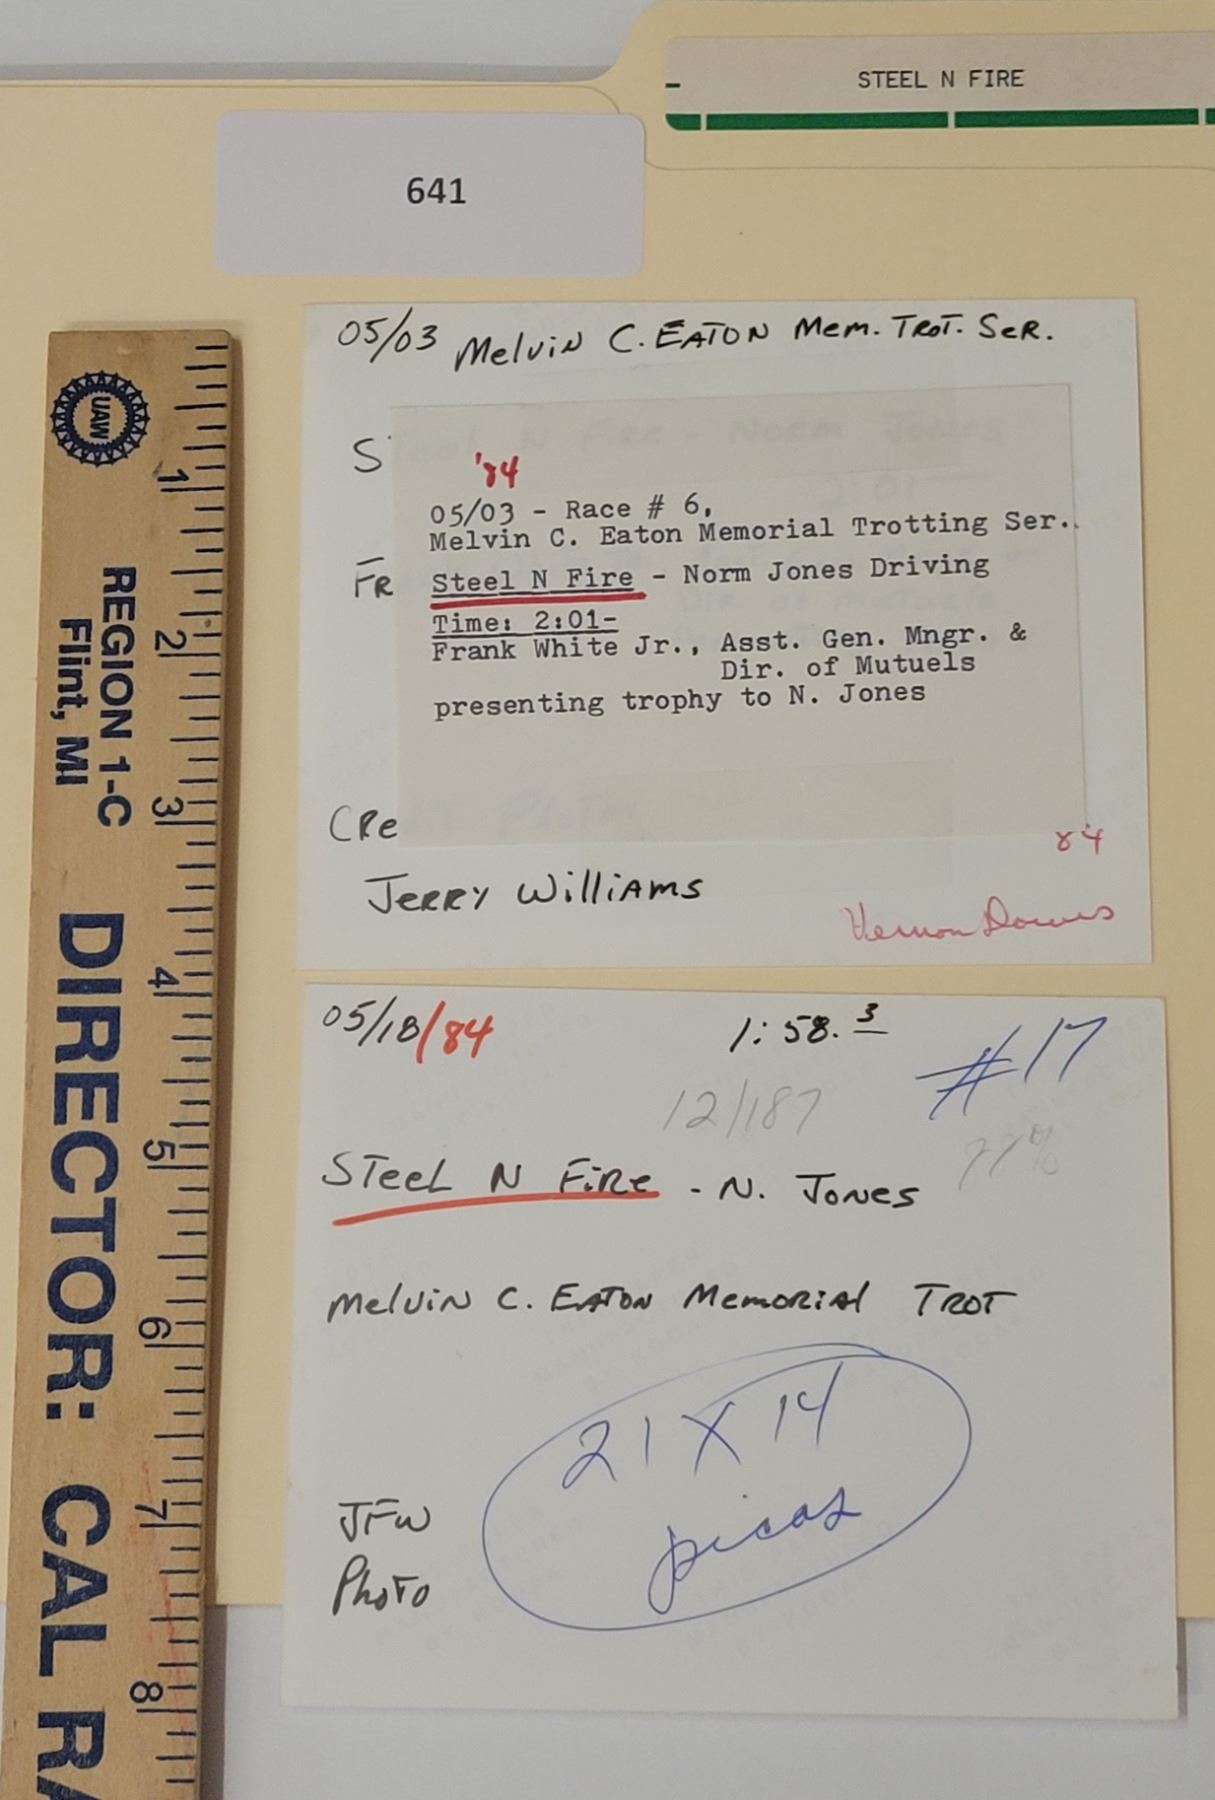 STEEL N FIRE
641
05/03 Melvin C. EATON Mem. TROT. SeR.
S
'84
05/03 - Race # 6,
Melvin C. Eaton Memorial Trotting Ser..
FR
Steel N Fire - Norm Jones Driving
Time: 2:01-
Frank White Jr., Asst. Gen. Mngr. &
Dir. of Mutuels
presenting trophy to N. Jones
CRe
84
JeRRY WilliAms
Vernon Downs
05/18/84
1:58.3
#17
12/187
77%
STeeL N FiRe - N. JoNes
MelviN C. EATON MemoRiAl TROT
21 X 14
picas
JFW
PhoTo
UAW
REGION 1-C
Flint, MI
DIRECTOR: CAL RA
1
2
3
4
5
6
7
8